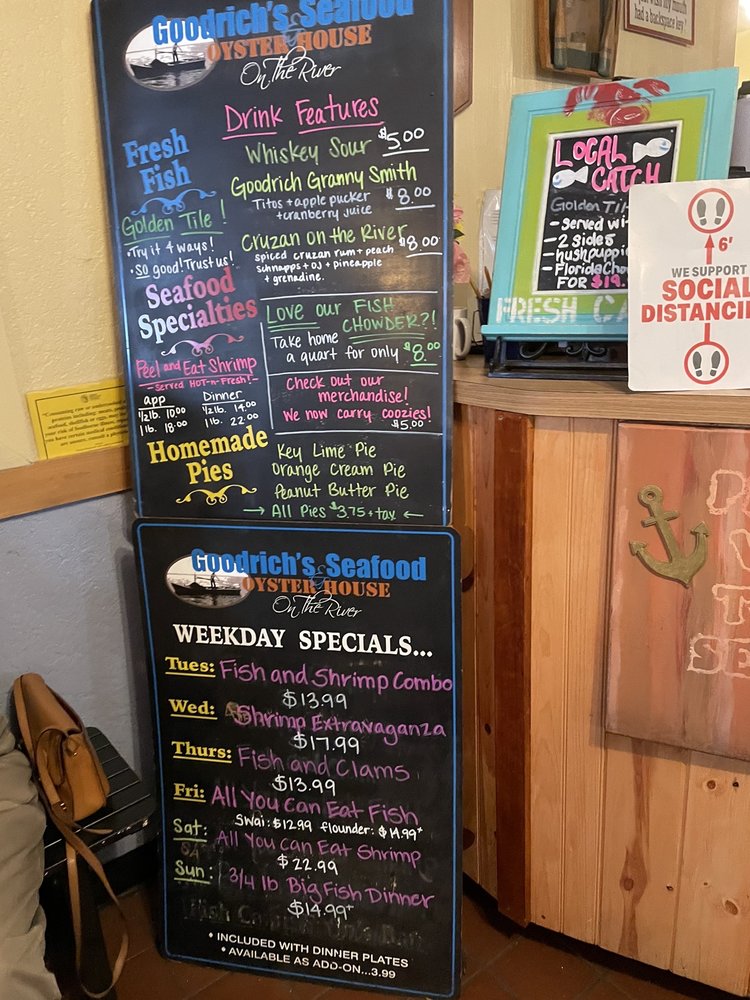 Goodrich's Seafood
& OYSTER HOUSE
On The River
Drink Features
Whiskey Sour $5.00
Goodrich Granny Smith
Titos + apple pucker
+ cranberry juice
$8.00
Cruzan on the River
spiced cruzan rum + peach
schnapps + OJ + pineapple
+ grenadine.
$8.00
Fresh
Fish
Golden Tile!
• Try it 4 ways!
• so good! Trust us!
Seafood
Specialties
Peel and Eat Shrimp
- Served HOT-n-Fresh! -
app Dinner
1/2 lb. 10.00 1/2 lb. 14.00
1 lb. 18.00 1 lb. 22.00
Love our Fish
Chowder?!
Take home
a quart for only $8.00
Check out our
merchandise!
We now carry coozies!
$5.00
Homemade
Pies
Key Lime Pie
Orange Cream Pie
Peanut Butter Pie
→ All Pies $3.75 + tax ←
Goodrich's Seafood
& OYSTER HOUSE
On The River
WEEKDAY SPECIALS...
Tues: Fish and Shrimp Combo
$13.99
Wed: Shrimp Extravaganza
$17.99
Thurs: Fish and Clams
$13.99
Fri: All You Can Eat Fish
Swai: $12.99 flounder: $14.99+
Sat: All You Can Eat Shrimp
$22.99
Sun: 3/4 lb Big Fish Dinner
$14.99+
• INCLUDED WITH DINNER PLATES
• AVAILABLE AS ADD-ON...3.99
had a backspace key!
LOCAL
CATCH
Golden Til
- served wi
- 2 sides
hushpuppi
- Florida Cho
FOR $19.
FRESH CA
6'
WE SUPPORT
SOCIAL
DISTANCIN
SE